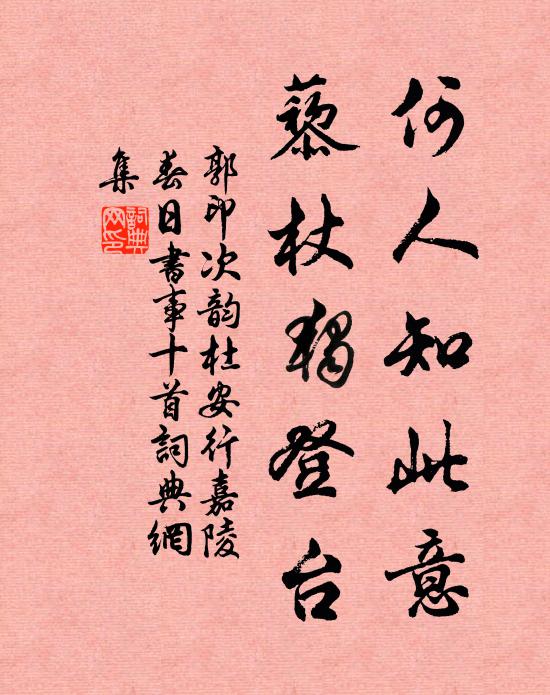 何人知此意
藜杖獨登台
郭印次韵杜安行嘉陵
春日書事十首詞典網
集
詞典
网印